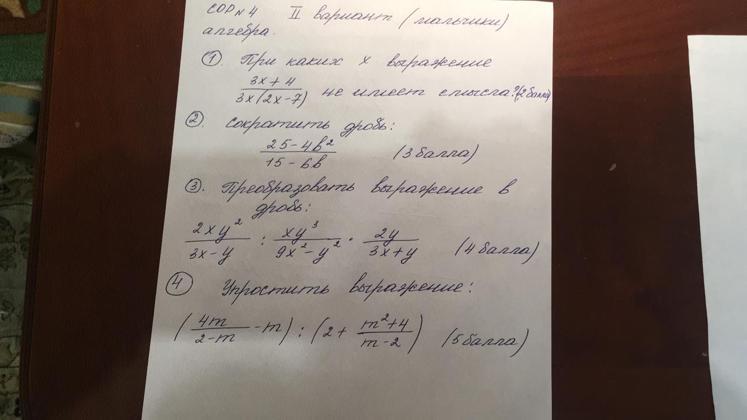 СОР №4 II вариант (мальчики)
алгебра.
① При каких х выражение
(3x+4)/(3x(2x-7)) не имеет смысла? (2 балла)
②. Сократить дробь:
(25-4b²)/(15-6b) (3 балла)
③. Преобразовать выражение в
дробь:
(2xy²)/(3x-y) : (xy³)/(9x²-y²) · (2y)/(3x+y) (4 балла)
④ Упростить выражение:
((4m)/(2-m) - m) : (2 + (m²+4)/(m-2)) (5 балла)